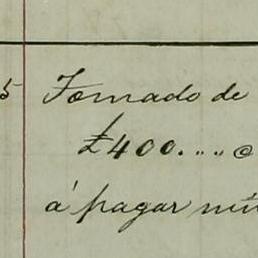 5 Tomado de
£400.... @
á pagar